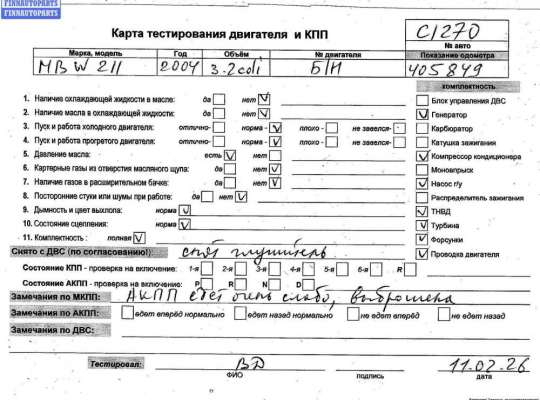 FINNAUTOPARTS
FINNAUTOPARTS
Карта тестирования двигателя и КПП
C1270
№ авто
Марка, модель Год Объём № двигателя Показание одометра
MB W 211 2004 3.2cdi Б/Н 405849
комплектность
1. Наличие охлаждающей жидкости в масле: да нет
2. Наличие масла в охлаждающей жидкости: да нет
3. Пуск и работа холодного двигателя: отлично- норма - плохо - не завелся-
4. Пуск и работа прогретого двигателя: отлично- норма - плохо - не завелся-
5. Давление масла: есть нет
6. Картерные газы из отверстия масляного щупа: да нет
7. Наличие газов в расширительном бачке: да нет
8. Посторонние стуки или шумы при работе: да нет
9. Дымность и цвет выхлопа: норма
10. Состояние сцепления: норма
11. Комплектность : полная
Блок управления ДВС
Генератор
Карбюратор
Катушка зажигания
Компрессор кондиционера
Моновпрыск
Насос г/у
Распределитель зажигания
ТНВД
Турбина
Форсунки
Проводка двигателя
Снято с ДВС (по согласованию): снят глушитель
Состояние КПП - проверка на включение: 1-я 2-я 3-я 4-я 5-я 6-я R
Состояние АКПП - проверка на включение: P R N D
Замечания по МКПП: АКПП едет очень слабо, выброшена
Замечания по АКПП: едет вперёд нормально едет назад нормально не едет вперёд не едет назад
Замечания по ДВС:
Тестировал: ВД 11.02.26
ФИО подпись дата